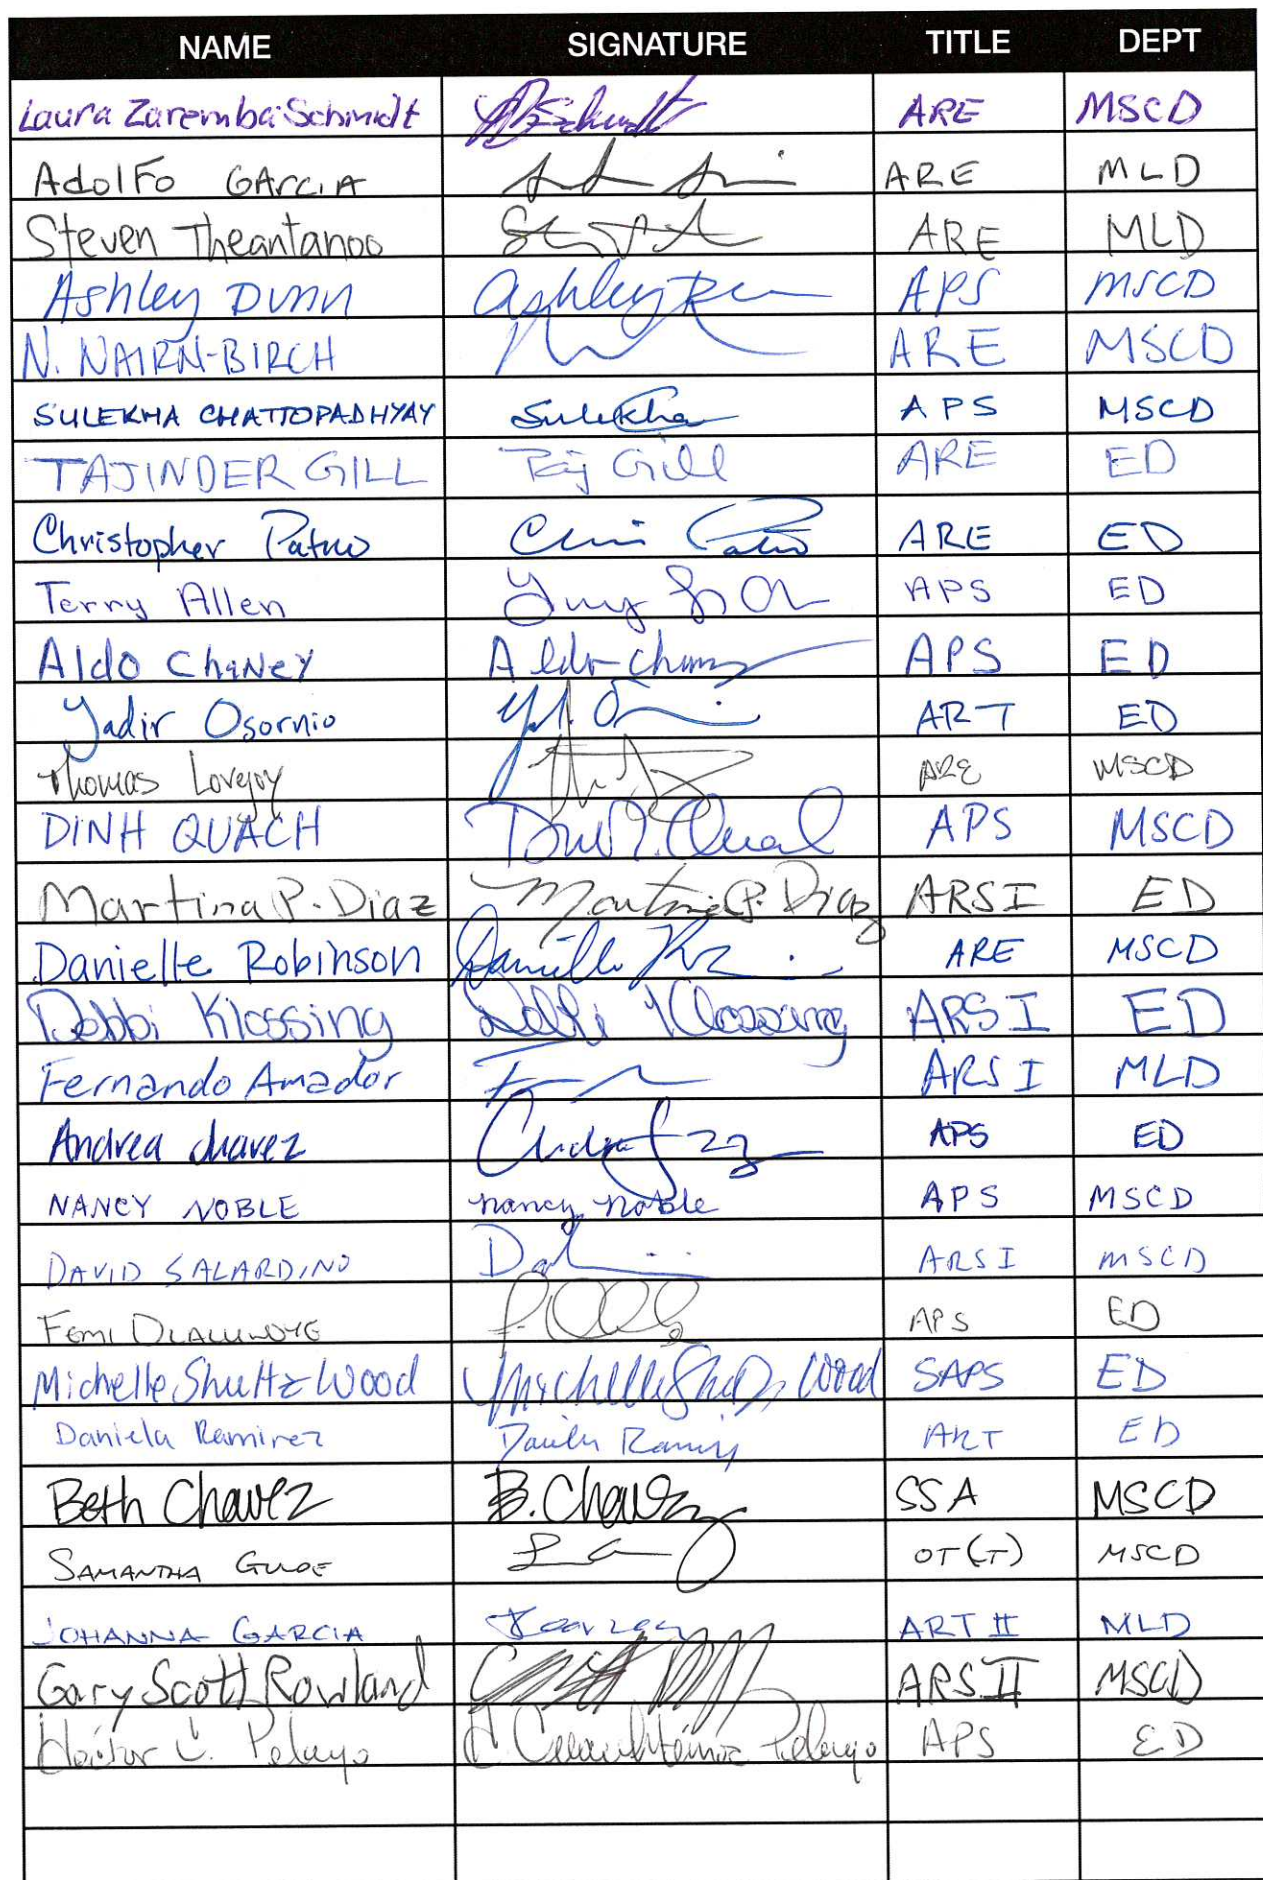 NAME SIGNATURE TITLE DEPT
Laura Zaremba-Schmidt Schmidt ARE MSCD
Adolfo GArciA ARE MLD
Steven Theantanoo ARE MLD
Ashley Dunn Ashley APS MSCD
N. NAIRN-BIRCH ARE MSCD
SULEKHA CHATTOPADHYAY Sulekha APS MSCD
TAJINDER GILL Taj Gill ARE ED
Christopher Patno ARE ED
Terry Allen APS ED
Aldo ChaNey Aldo Chaney APS ED
Yadir Osornio ART ED
Thomas Lovejoy ARE MSCD
DINH QUACH APS MSCD
Martina P. Diaz Martina P. Diaz ARSI ED
Danielle Robinson Danielle ARE MSCD
Debbi Klossing Debbi Klossing ARSI ED
Fernando Amador ARSI MLD
Andrea Chavez APS ED
NANCY NOBLE nancy noble APS MSCD
DAVID SALARDINO ARSI MSCD
FEMI APS ED
Michelle Shultz Wood Michelle Wood SAPS ED
Daniela Ramirez ART ED
Beth Chavez B. Chavez SSA MSCD
SAMANTHA OT(T) MSCD
JOHANNA GARCIA ART II MLD
Gary Scott Rowland ARS II MSCD
Héctor C. Pelayo C. Cuauhtémoc Pelayo APS ED